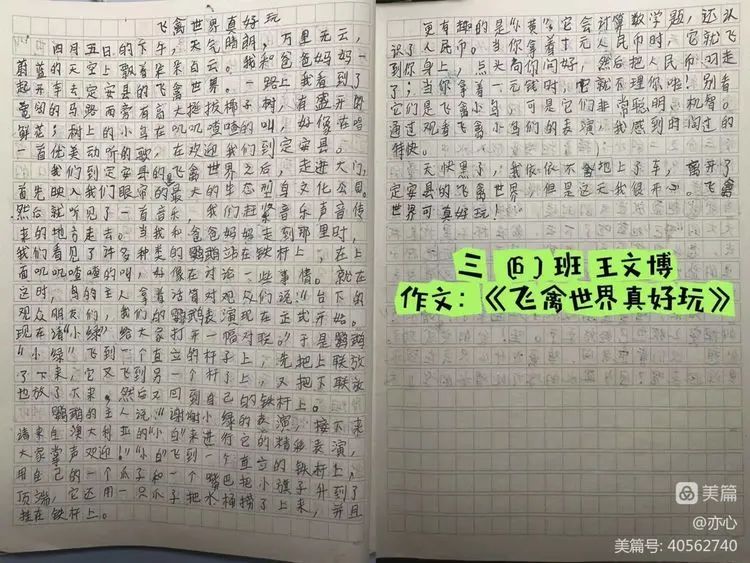 飞禽世界真好玩
四月五日的下午,天气晴朗,万里无云,
蔚蓝的天空上飘着朵朵白云。我和爸爸妈妈一
起开车去定安县的飞禽世界。一路上我看到了
宽阔的马路两旁有高大挺拔椰子树,有盛开的
鲜花;树上的小鸟在叽叽喳喳的叫,好像在唱
一首优美动听的歌,在欢迎我们到定安县。
我们到定安县的飞禽世界之后,走进大门,
首先映入我们眼帘的最大的生态型鸟文化公园。
然后就听见了一首音乐,我们赶紧音乐声音传
来的地方走去。当我和爸爸妈妈走到那里时,
我们看见了许多种类的鹦鹉站在铁杆上,在上
面叽叽喳喳的叫,好像在讨论一些事情。就在
这时,鸟的主人拿着话筒对观众们说:“台下的
观众朋友们,我们的鹦鹉表演现在正式开始。
现在请“小绿”给大家打开一幅对联。”于是鹦鹉
“小绿”飞到一个直立的杆子上,先把上联放
了下来,它又飞到另一个杆子上,又把下联放
也放了下来,然后又回到自己的铁杆上。
鹦鹉的主人说:“谢谢小绿的表演,接下来
请来自澳大利亚的“小白”来进行它的精彩表演,
大家掌声欢迎!”“小白”飞到一个直立的铁杆上,
用自己的一个爪子和一个嘴巴把小旗子升到了
顶端,它还用一只爪子把水桶捞了上来,并且
挂在铁杆上。
更有趣的是“小黄”,它会计算数学题,还认
识了人民币。当你拿着十元人民币时,它就飞
到你身上,点头向你问好,然后把人民币叼走
了;当你拿着一元钱时,它就不理你啦!别看
它们是飞禽小鸟,可是它们非常聪明、机智。
通过观看飞禽小鸟们的表演,我感到时间过的
特快。
天快黑了,我依依不舍地上了车,离开了
定安县的飞禽世界,但是这天我很开心。飞禽
世界可真好玩!
三(6)班 王文博
作文:《飞禽世界真好玩》
美篇
@亦心
美篇号: 40562740